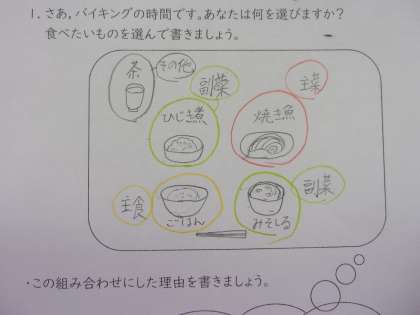 1. さあ，バイキングの時間です。あなたは何を選びますか？
食べたいものを選んで書きましょう。
茶
その他
副菜
主菜
ひじき煮
焼き魚
主食
ごはん
みそしる
副菜
・この組み合わせにした理由を書きましょう。